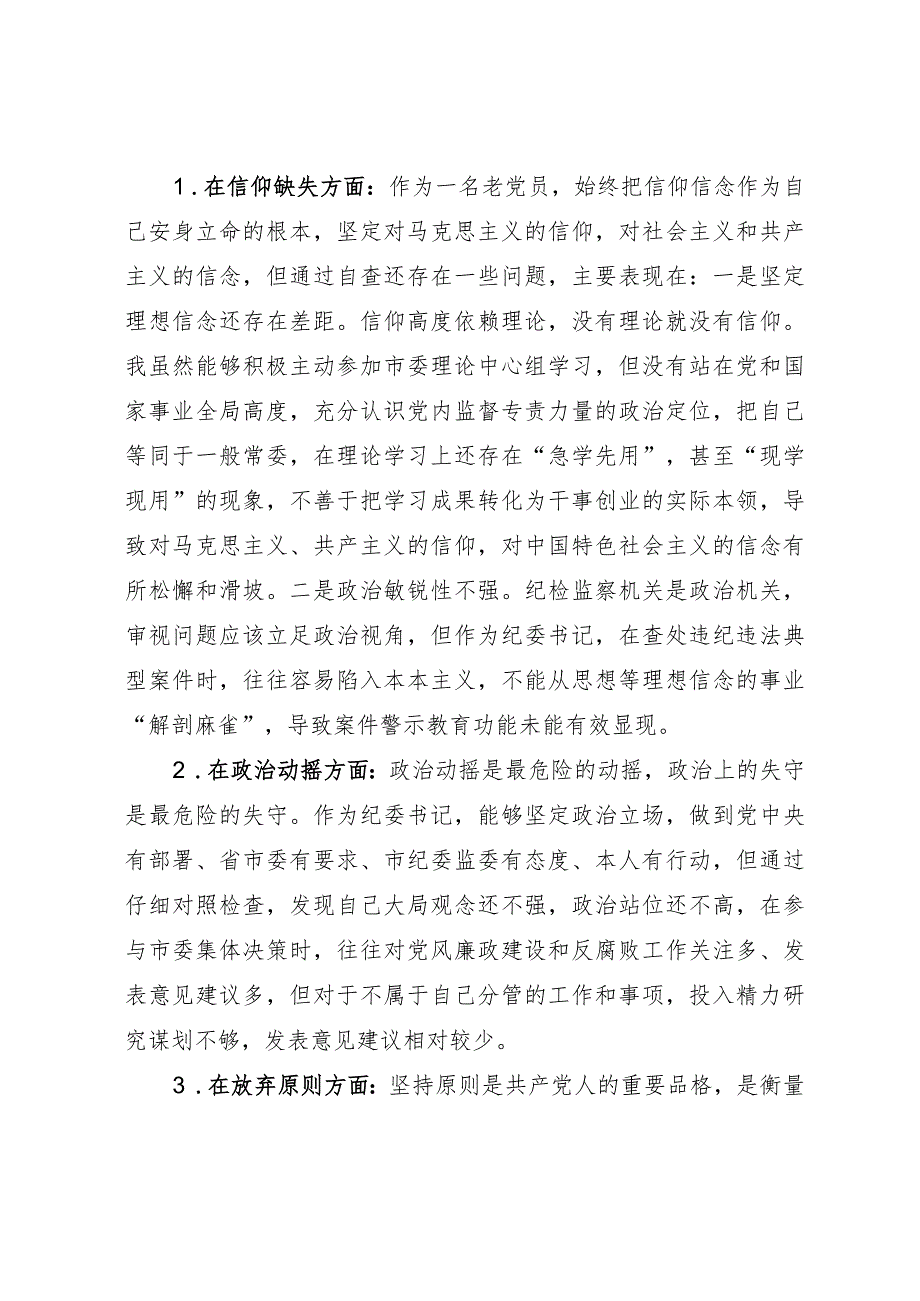 1.在信仰缺失方面：作为一名老党员，始终把信仰信念作为自
己安身立命的根本，坚定对马克思主义的信仰，对社会主义和共产
主义的信念，但通过自查还存在一些问题，主要表现在：一是坚定
理想信念还存在差距。信仰高度依赖理论，没有理论就没有信仰。
我虽然能够积极主动参加市委理论中心组学习，但没有站在党和国
家事业全局高度，充分认识党内监督专责力量的政治定位，把自己
等同于一般常委，在理论学习上还存在“急学先用”，甚至“现学
现用”的现象，不善于把学习成果转化为干事创业的实际本领，导
致对马克思主义、共产主义的信仰，对中国特色社会主义的信念有
所松懈和滑坡。二是政治敏锐性不强。纪检监察机关是政治机关，
审视问题应该立足政治视角，但作为纪委书记，在查处违纪违法典
型案件时，往往容易陷入本本主义，不能从思想等理想信念的事业
“解剖麻雀”，导致案件警示教育功能未能有效显现。
2.在政治动摇方面：政治动摇是最危险的动摇，政治上的失守
是最危险的失守。作为纪委书记，能够坚定政治立场，做到党中央
有部署、省市委有要求、市纪委监委有态度、本人有行动，但通过
仔细对照检查，发现自己大局观念还不强，政治站位还不高，在参
与市委集体决策时，往往对党风廉政建设和反腐败工作关注多、发
表意见建议多，但对于不属于自己分管的工作和事项，投入精力研
究谋划不够，发表意见建议相对较少。
3.在放弃原则方面：坚持原则是共产党人的重要品格，是衡量